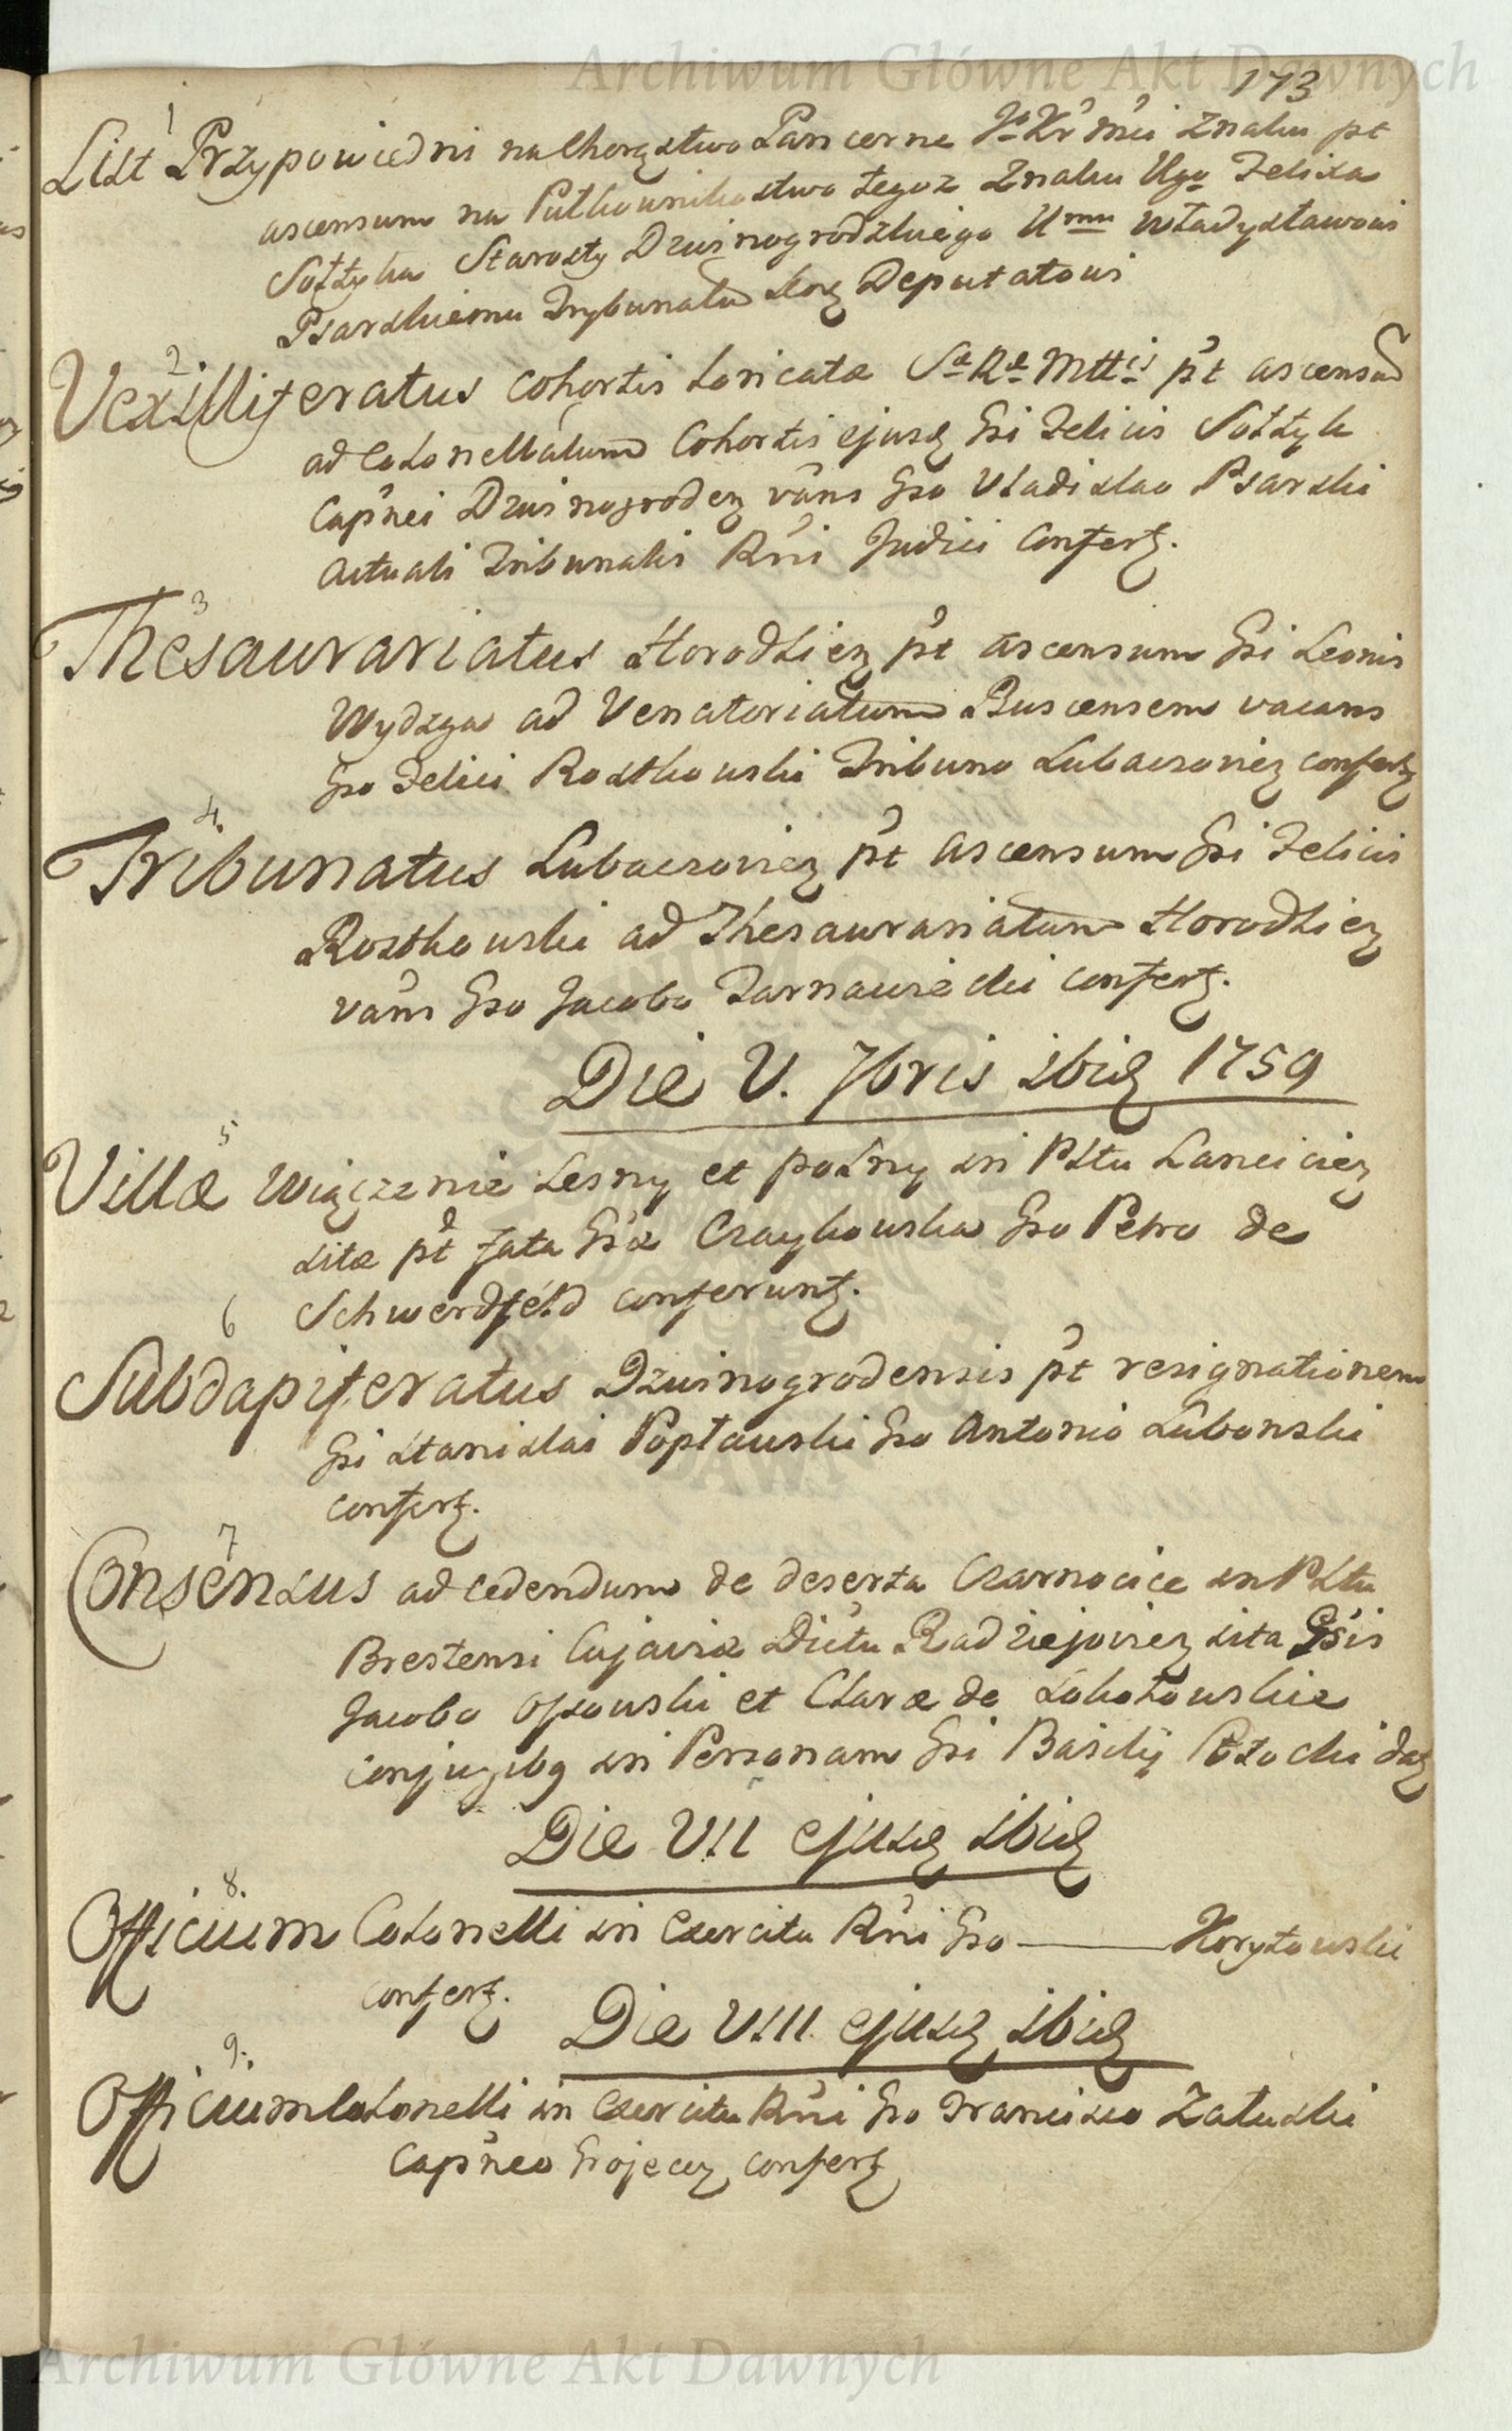 Archiwum Główne Akt Dawnych
173
1
List Przypowiedni na Chorąstwo Pancerne Jo Kr Mci Znaku pt
ascensum na Pułkownikostwo tegoz Znaku Ugo Felixa
Sołtyka Starosty Dzwinogrodzkiego Umu Władysławowi
Psarskiemu Trybunału Kor Deputatowi
2
Vexilliferatus Cohortis Loricatæ Sæ Ræ Mttis pt ascensum
ad Colonellatum Cohortis ejusd Gsi Felicis Sołtyk
Capnei Dzwinogroden vans Gso Vladislao Psarski
Actuali Tribunalis Rni Judici Confert.
3
Thesaurariatus Horodlien pt ascensum Gsi Leonis
Wydzga ad Venatoriatum Buscensem vacans
Gso Felici Rostkowski Tribuno Lubaczovien confert
4.
Tribunatus Lubaczovien pt ascensum Gsi Felicis
Rostkowski ad Thesaurariatum Horodlien
vans Gso Jacobo Tarnawiecki confert.
Die V. 7bris ibid 1759
5
Villæ Wiączenie Lesny et polny in Pltu Lancicien
sitæ pt fata Gsæ Czaykowska Gso Petro de
Schwerdfeld conferunt.
6
Subdapiferatus Dzwinogrodensis pt resignationem
Gsi Stanislai Popławski Gso Antonio Lubonski
confert.
7
Consensus ad cedendum de deserta Czarnocice in Pltu
Brestensi Cujaviæ Dictu Radziejovien sita Gsis
Jacobo Ossowski et Claræ de Sokołowskie
conjugibg in Personam Gsi Basilij Płocki dat
Die VII ejusd ibid
8.
Officium Colonelli in Exercitu Rni Gso ——— Korytowski
confert.
Die VIII ejusd ibid
9.
Officium Colonelli in Exercitu Rni Gso Francisco Załuski
Capneo Grojecen confert
Archiwum Główne Akt Dawnych